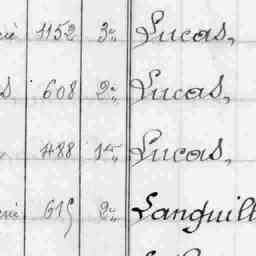 1152 3e, Lucas,
608 2e, Lucas,
488 1e, Lucas,
615 2e, Languill